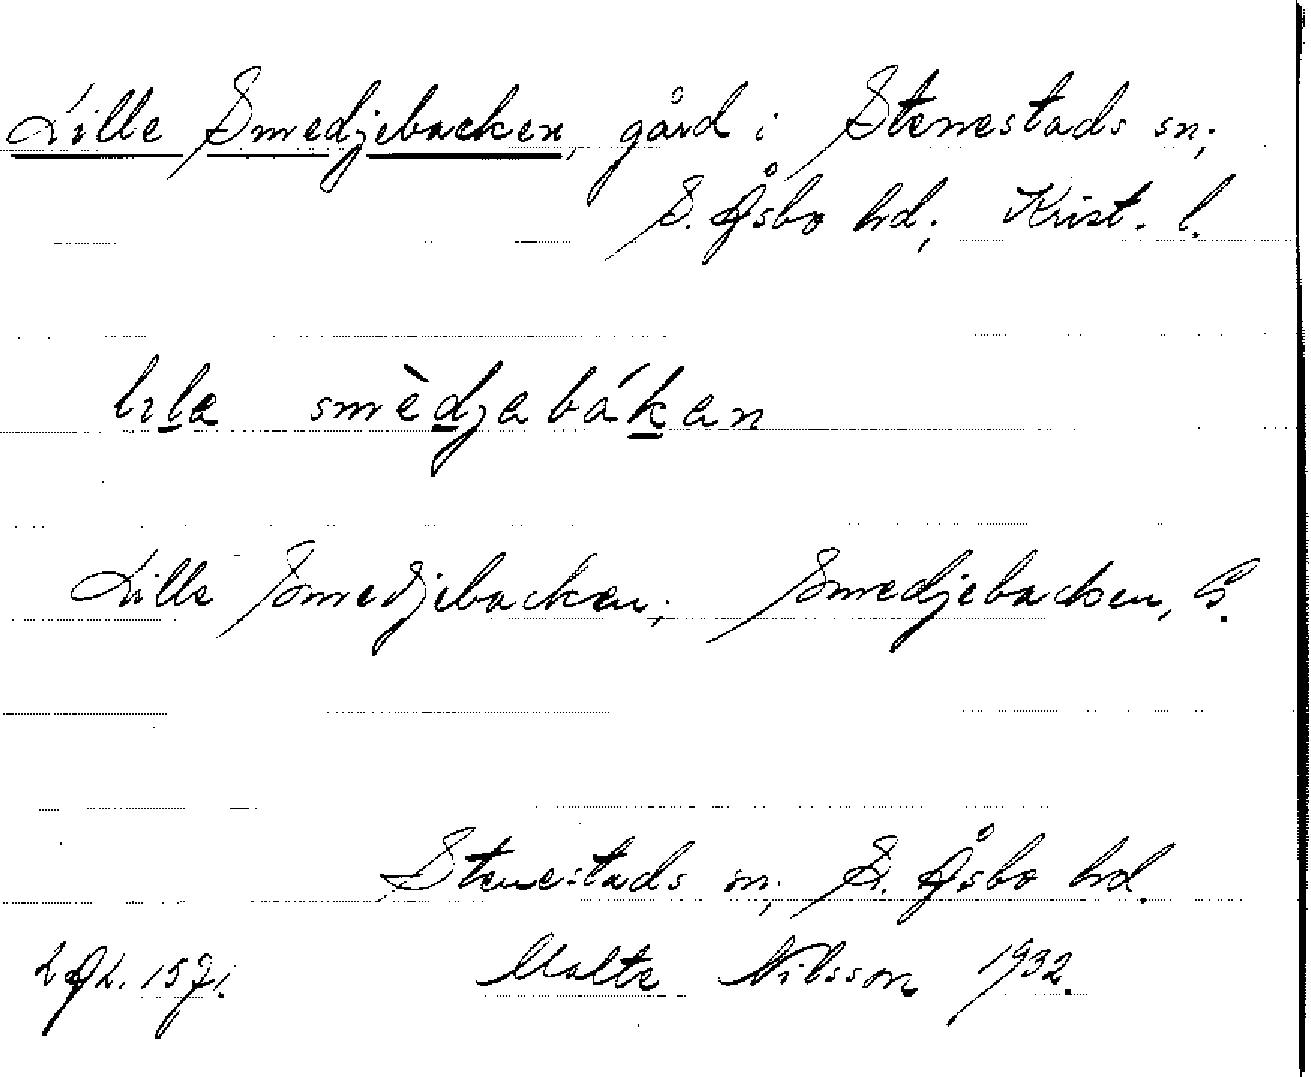 Lille Smedjebacken, gård i Stenestads sn;
S. Åsbo hd; Krist. l.
lıla smèdjabákan
Lille Smedjebacken; Smedjebacken, S.
Stenestads sn; S. Åsbo hd.
Malte Nilsson 1932.